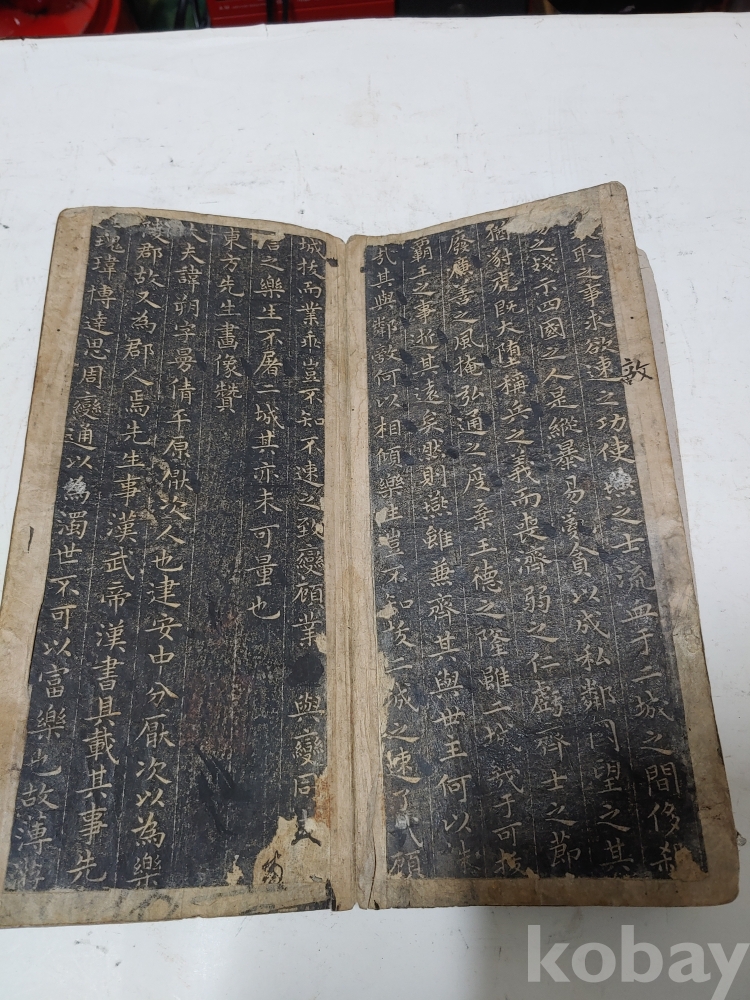 敦
取之事求欲速之功使燕之士流血于二城之間侈殺
之殘示四國之人是縱暴易亂貪以成私鄰國望之其
猶豺虎既大墮稱兵之義而喪濟弱之仁虧齊士之節
廢廣善之風掩弘通之度棄王德之隆雖二城幾于可拔
霸王之事逝其遠矣然則燕雖兼齊其與世王何以殊
其與鄰敵何以相傾樂生豈不知拔二城之速了哉顧
城拔而業乖豈不知不速之致變顧業與變同
言之樂生不屠二城其亦未可量也
東方先生畫像贊
大夫諱朔字曼倩平原厭次人也建安中分厭次以為樂
陵郡故又為郡人焉先生事漢武帝漢書具載其事先
瑰瑋博達思周變通以為濁世不可以富樂也故薄游
kobay